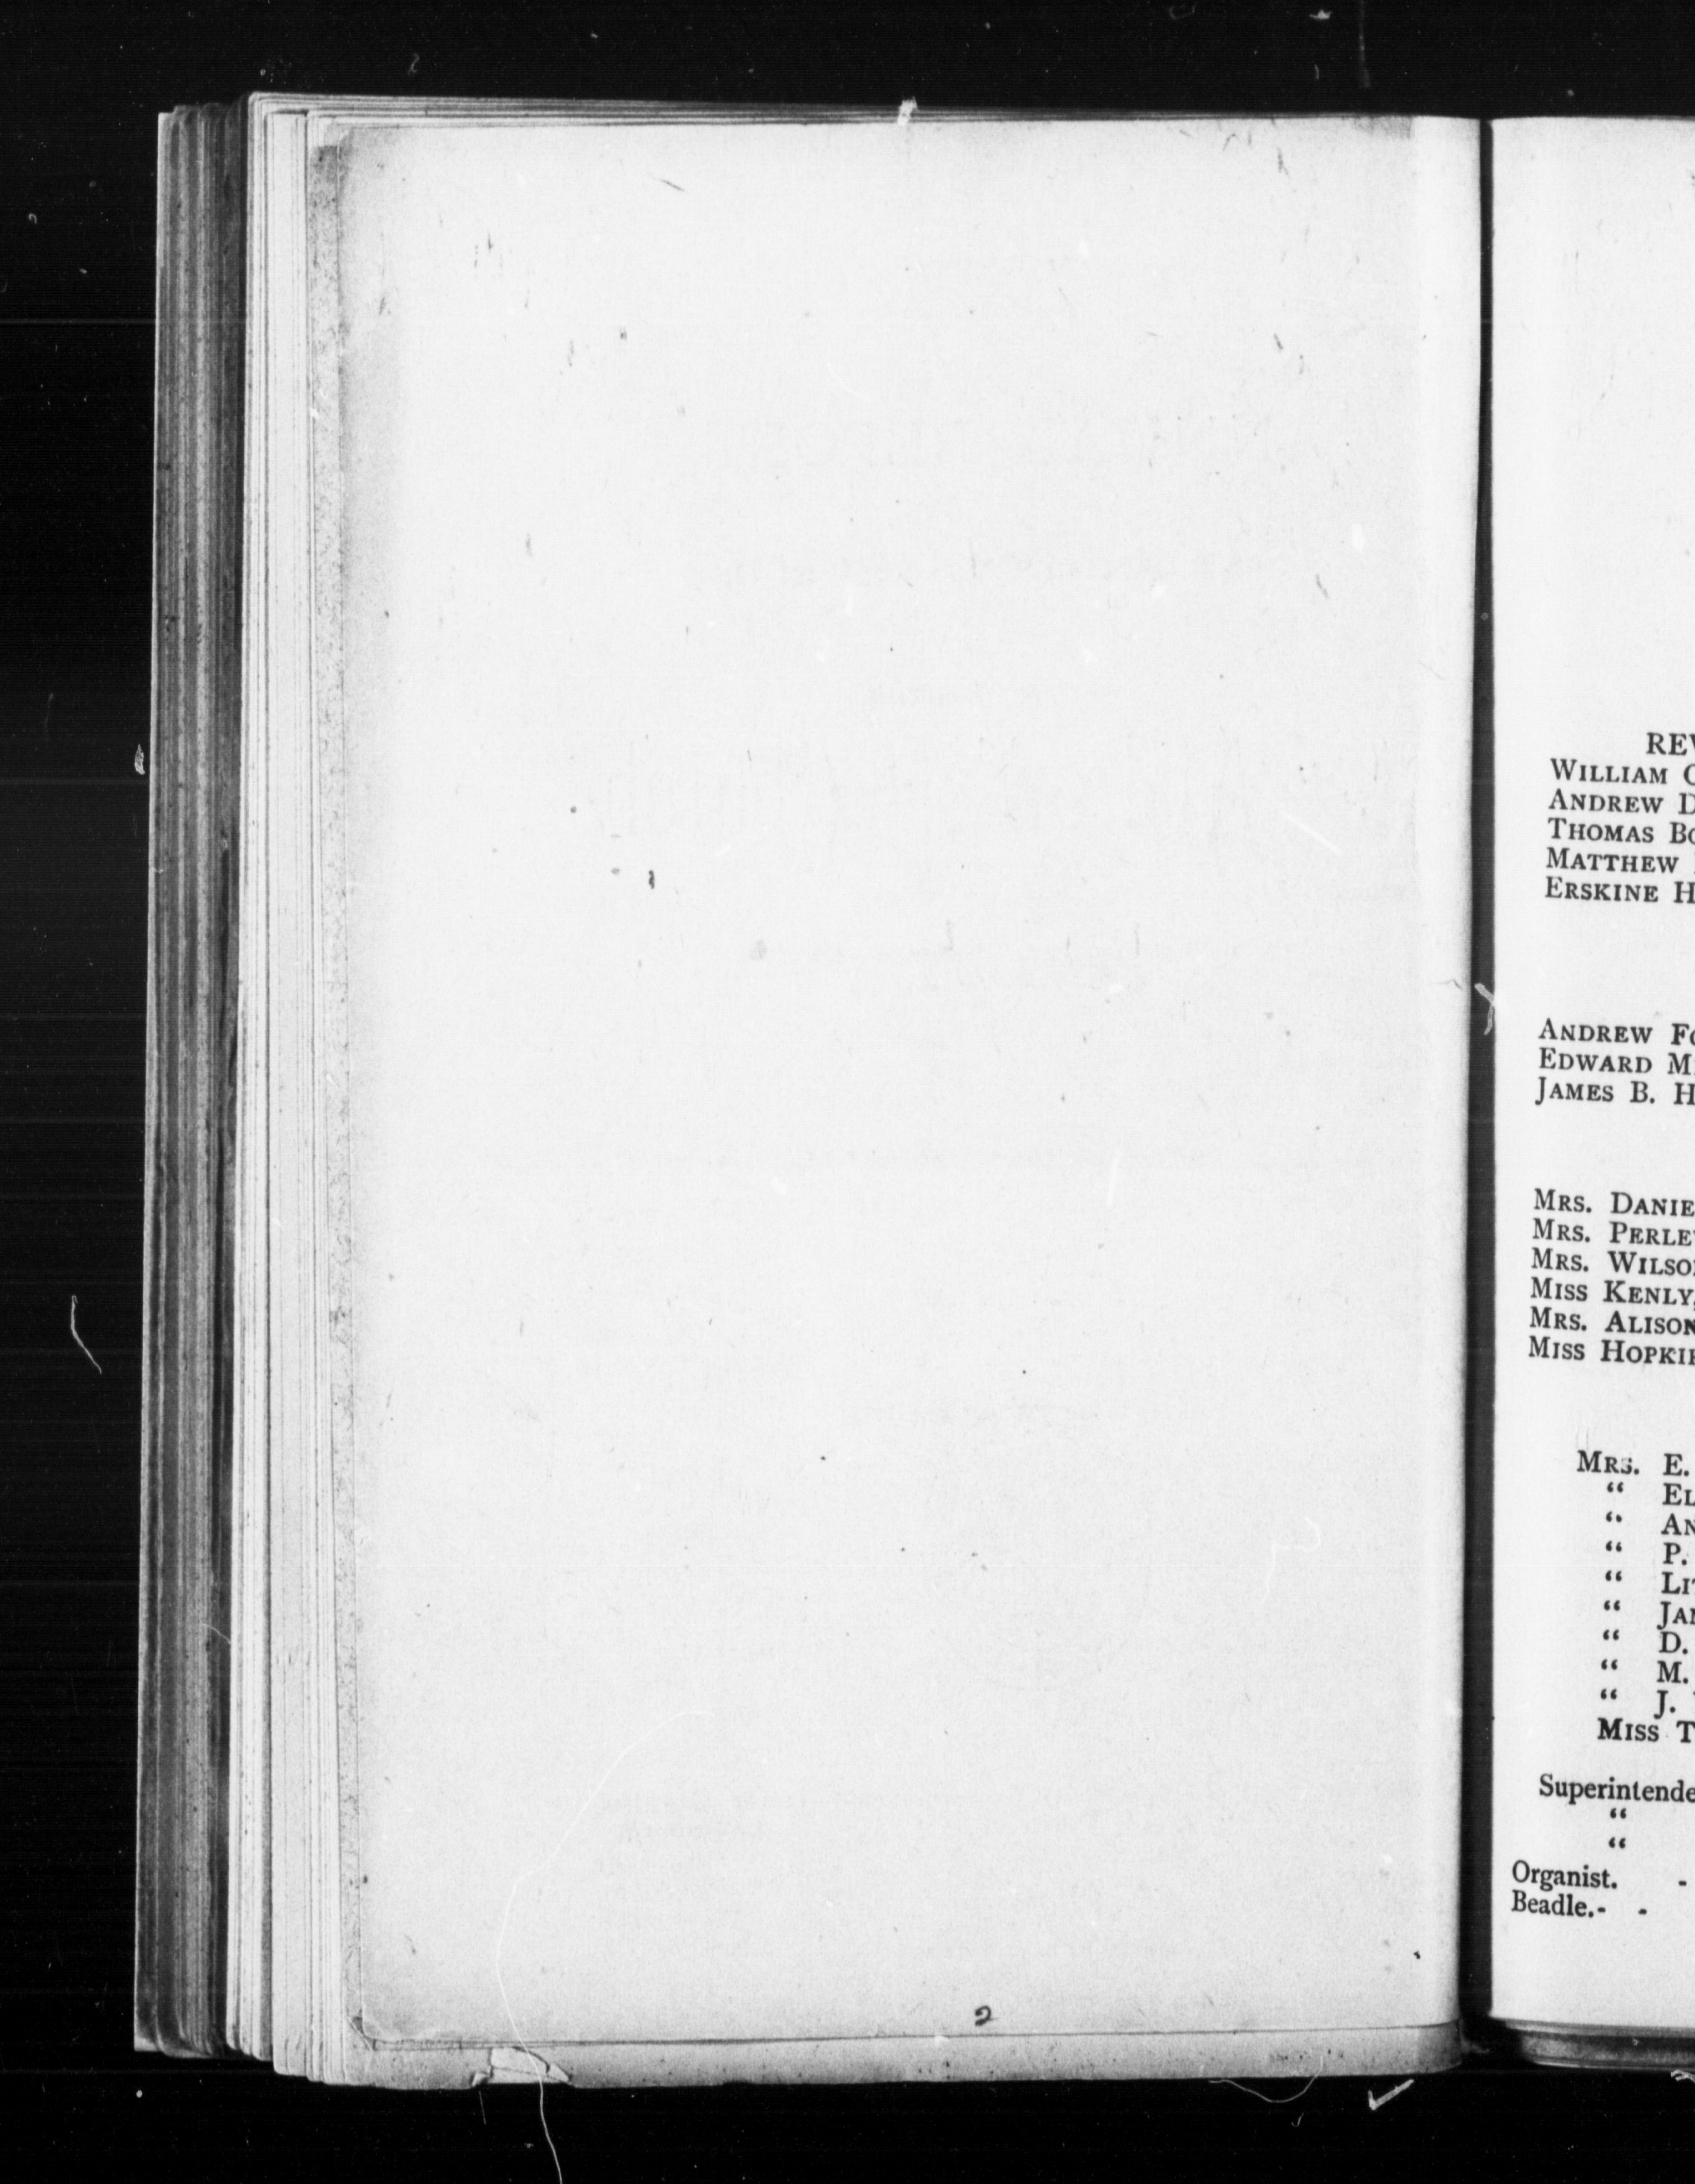 2
REV
WILLIAM C
ANDREW D
THOMAS BO
MATTHEW
ERSKINE H
ANDREW FO
EDWARD M
JAMES B. H
MRS. DANIE
MRS. PERLEY
MRS. WILSO
MISS KENLY,
MRS. ALISON
MISS HOPKI
MRS. E.
“ EL
“ AN
“ P.
“ LIT
“ JAM
“ D.
“ M.
“ J.
MISS T
Superintende
“
“
Organist. -
Beadle.- -